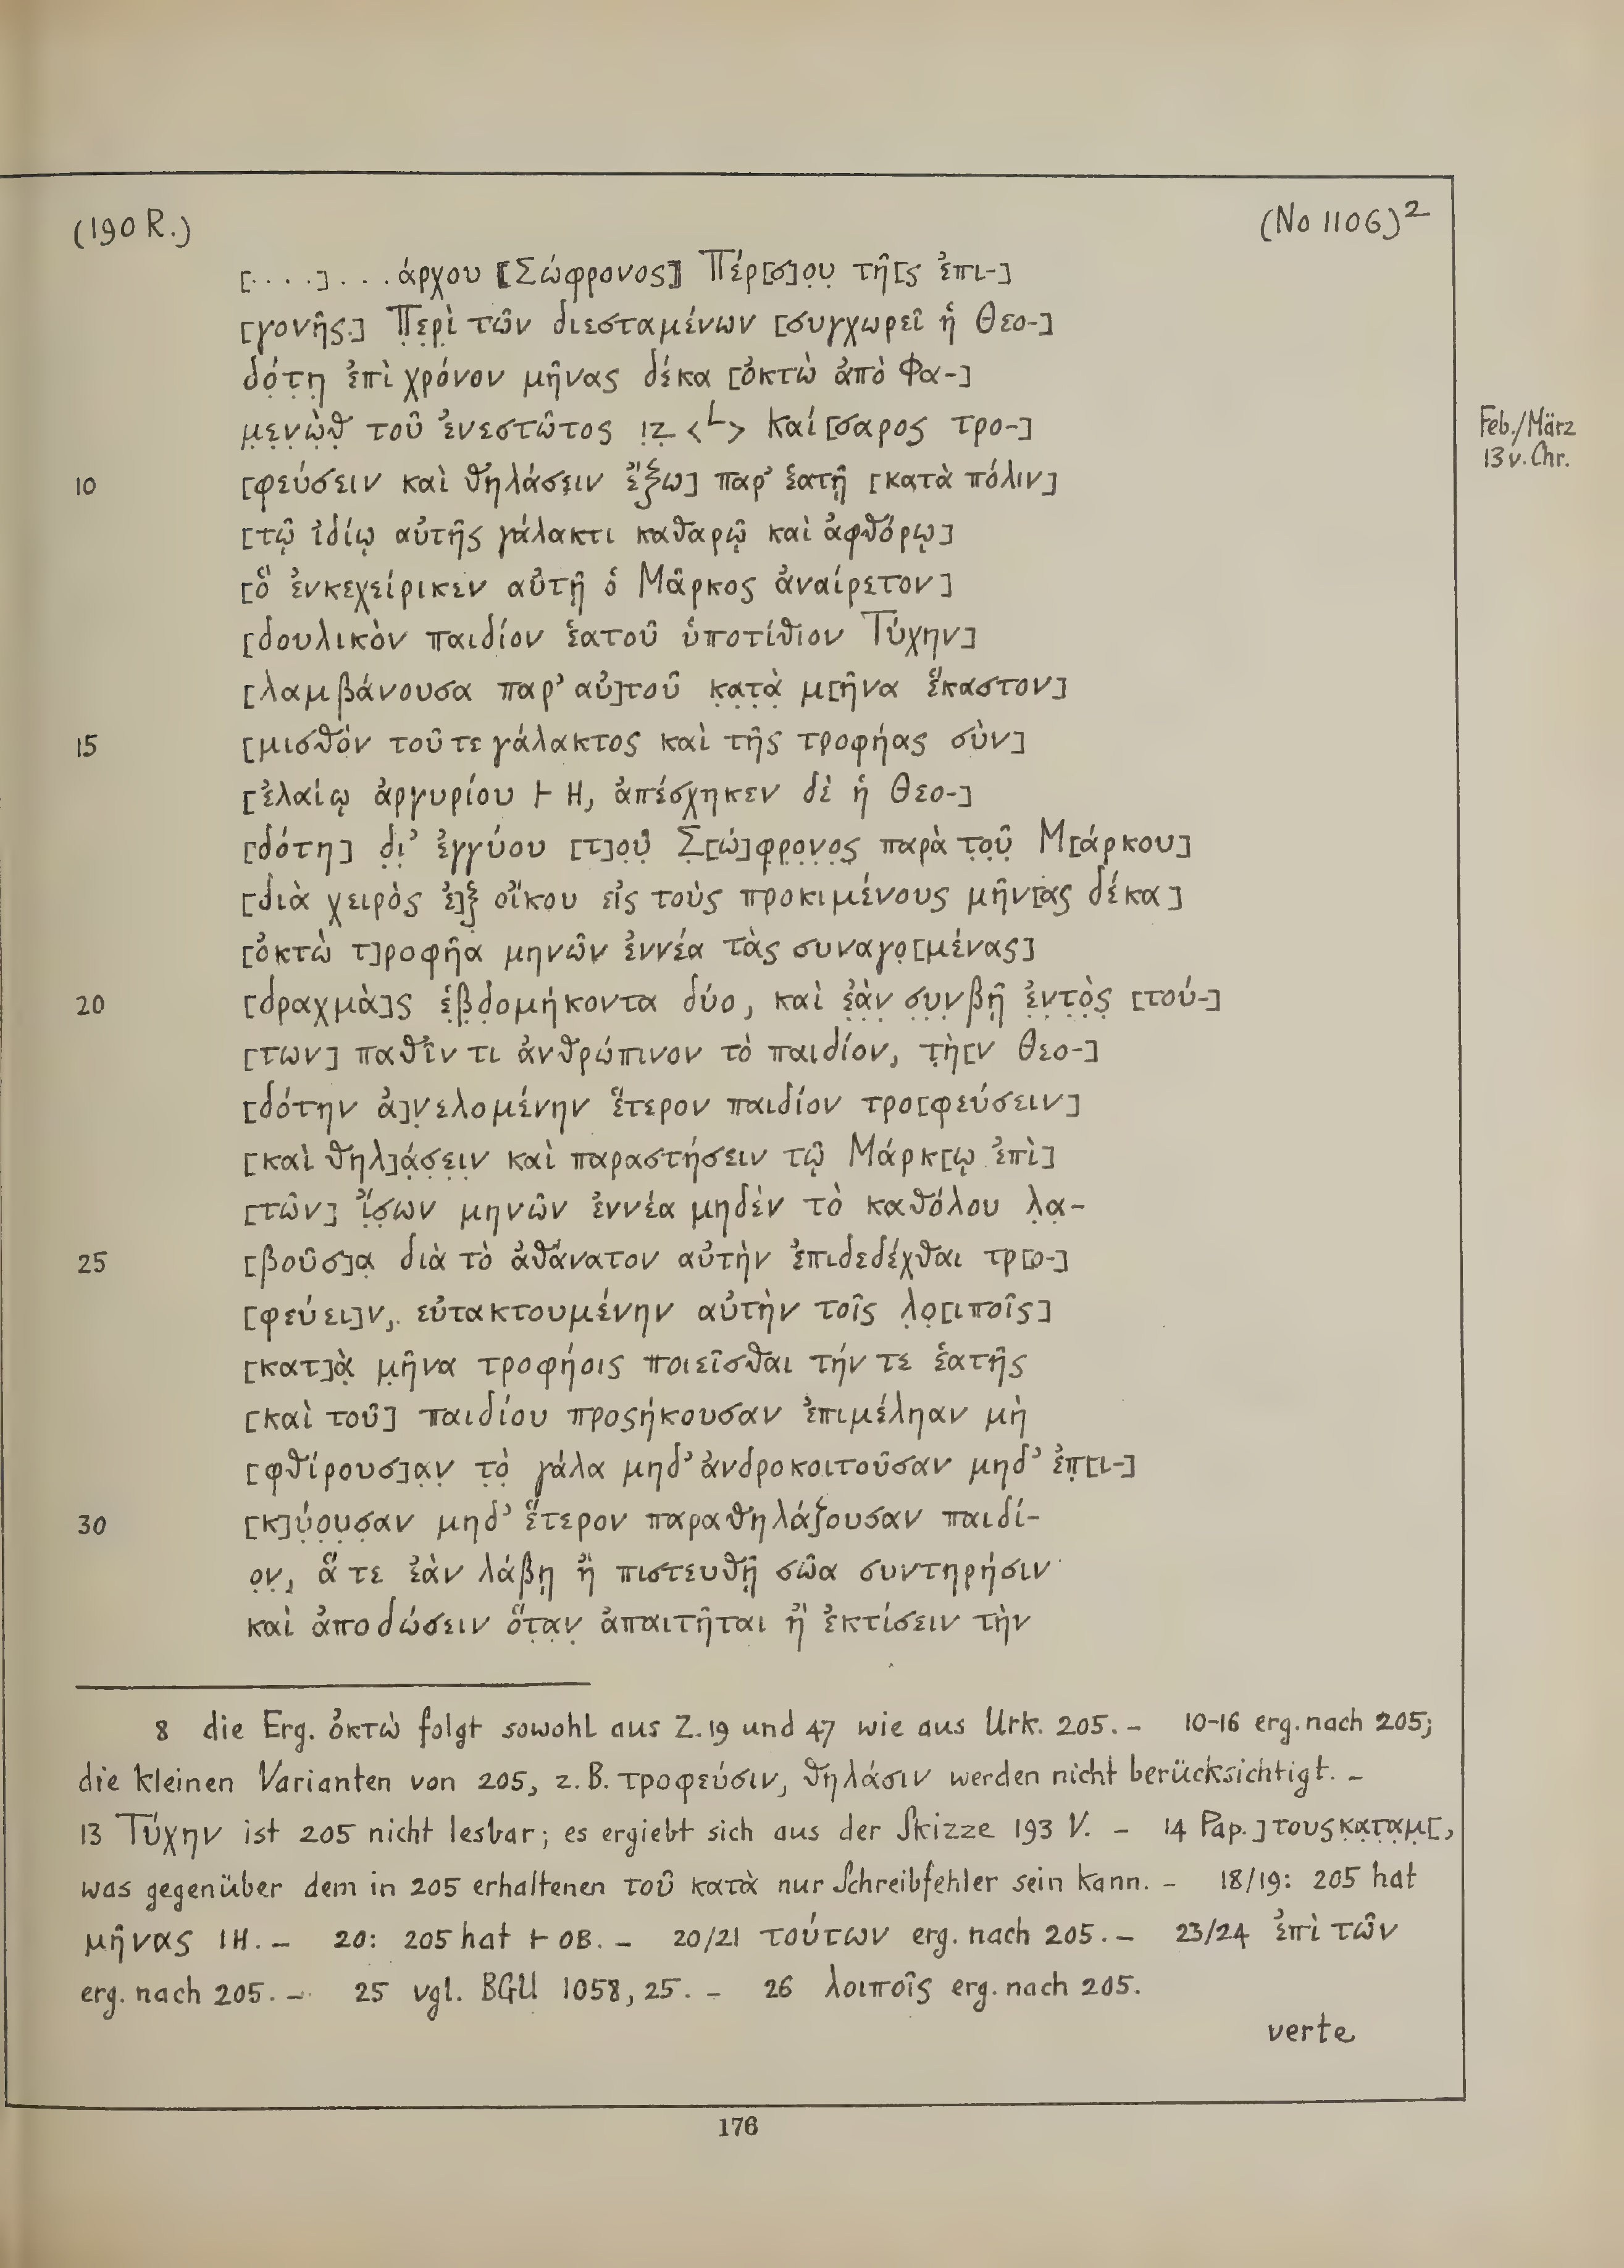 (190 R.) (No 1106)²
[. . . .] . . . άρχου [Σώφρονος] Πέρ[σ]ο̣υ̣ τῆ[ς ἐπι-]
[γονῆς.] Π̣ε̣ρ̣ὶ τῶν διεσταμένων [συγχωρεῖ ἡ Θεο-]
δό̣τ̣η̣ ἐπὶ χρόνον μῆνας δέκα [ὀκτὼ ἀπὸ Φα-]
μ̣ε̣ν̣ὼ̣θ̣ τοῦ ἐνεστῶτος ι̣ζ̣ <L> Καί[σαρος τρο-] Feb./März
13 v. Chr.
10 [φεύσειν καὶ θηλάσειν ἔξω] παρ' ἑατῇ [κατὰ πόλιν]
[τῷ ἰδίῳ αὐτῆς γάλακτι καθαρῷ καὶ ἀφθόρῳ]
[ὃ ἐνκεχείρικεν αὐτῇ ὁ Μᾶρκος ἀναίρετον]
[δουλικὸν παιδίον ἑατοῦ ὑποτίθιον Τύχην]
[λαμβάνουσα παρ' αὐ]τοῦ κ̣α̣τ̣ὰ̣ μ[ῆνα ἕκαστον]
15 [μισθὸν τοῦ τε γάλακτος καὶ τῆς τροφήας σὺν]
[ἐλαίῳ ἀργυρίου Ⱶ Η, ἀπέσχηκεν δὲ ἡ Θεο-]
[δότη] δ̣ι̣' ἐγγύου [τ]ο̣ῦ̣ Σ̣[ώ]φ̣ρ̣ο̣ν̣ο̣ς̣ παρὰ τ̣ο̣ῦ̣ Μ[άρκου]
[διὰ χειρὸς ἐ]ξ̣ οἴκου εἰς τοὺς προκιμένους μῆν[ας δέκα]
[ὀκτὼ τ]ροφῆα μηνῶν ἐννέα τὰς συναγο̣[μένας]
20 [δραχμὰ]ς ἑ̣β̣δ̣ομήκοντα δύο, καὶ ἐ̣ὰ̣ν̣ σ̣υ̣ν̣βῇ ἐ̣ν̣τ̣ὸ̣ς̣ [τού-]
[των] παθῖν τι ἀνθρώπινον τὸ παιδίον, τ̣ὴ[ν Θεο-]
[δότην ἀ]ν̣ελομένην ἕτερον παιδίον τρο[φεύσειν]
[καὶ θηλ]ά̣σ̣ε̣ι̣ν καὶ παραστήσειν τῷ Μάρκ[ῳ ἐπὶ]
[τῶν] ἴ̣σ̣ων μηνῶν ἐννέα μηδὲν τὸ καθόλου λ̣α̣-
25 [βοῦσ]α̣ διὰ τὸ ἀθάνατον αὐτὴν ἐπιδεδέχθαι τρ[ο-]
[φεύει]ν, εὐτακτουμένην αὐτὴν τοῖς λ̣ο̣[ιποῖς]
[κατ]ὰ̣ μ̣ῆνα τροφήοις ποιεῖσθαι τήν τε ἑατῆς
[καὶ τοῦ] παιδίου προςήκουσαν ἐπιμέληαν μὴ
[φθίρουσ]α̣ν̣ τ̣ὸ̣ γάλα μηδ' ἀνδροκοιτοῦσαν μηδ' ἐπ̣[ι-]
30 [κ]ύ̣ο̣υ̣σ̣αν μηδ' ἕτερον παραθηλάζουσαν παιδί-
ο̣ν̣, ἅ τε ἐὰν λάβῃ ἢ πιστευθῇ σῶα συντηρήσιν
καὶ ἀποδώσειν ὅτ̣α̣ν̣ ἀπαιτῆται ἢ ἐκτίσειν τὴν
8 die Erg. ὀκτὼ folgt sowohl aus Z. 19 und 47 wie aus Urk. 205. – 10-16 erg. nach 205;
die kleinen Varianten von 205, z. B. τροφεύσιν, θηλάσιν werden nicht berücksichtigt. –
13 Τύχην ist 205 nicht lesbar; es ergiebt sich aus der Skizze 193 V. – 14 Pap. ]τουςκ̣α̣τ̣α̣μ̣[,
was gegenüber dem in 205 erhaltenen τοῦ κατὰ nur Schreibfehler sein kann. – 18/19: 205 hat
μῆνας ΙΗ. – 20: 205 hat Ⱶ ΟΒ. – 20/21 τούτων erg. nach 205. – 23/24 ἐπὶ τῶν
erg. nach 205. – 25 vgl. BGU 1058, 25. – 26 λοιποῖς erg. nach 205.
verte
176